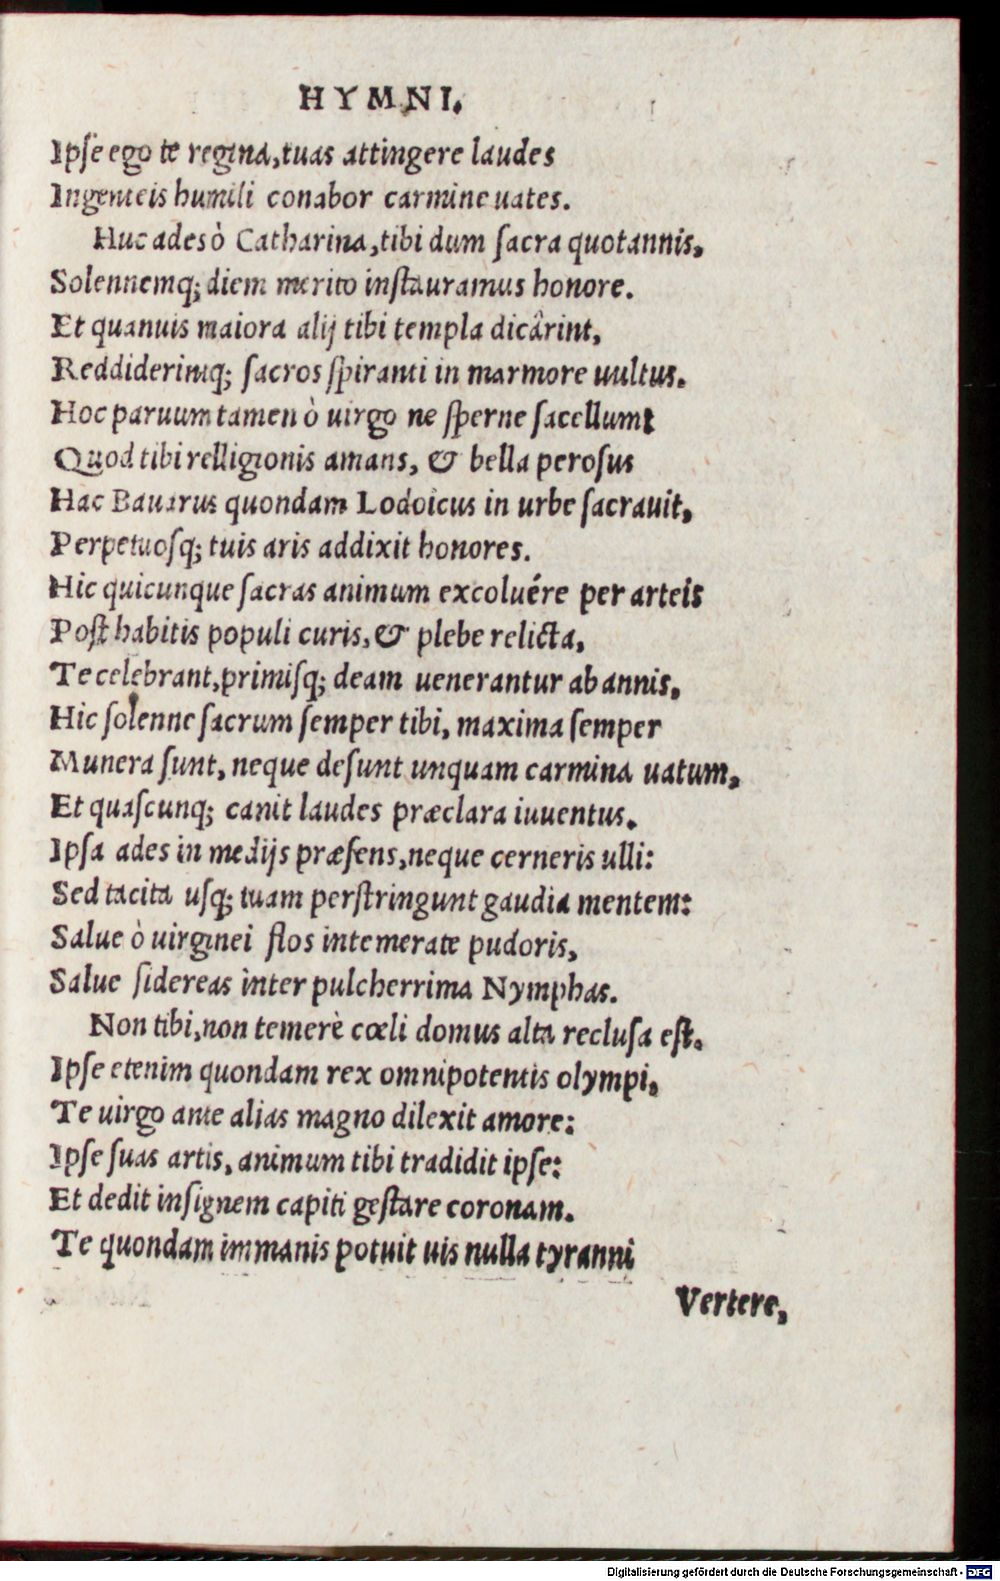 HYMNI.
Ipse ego te regina, tuas attingere laudes
Ingenteis humili conabor carmine uates.
Huc ades ò Catharina, tibi dum sacra quotannis,
Solennemq; diem merito instauramus honore.
Et quanuis maiora alij tibi templa dicârint,
Reddiderintq; sacros spiranti in marmore uultus.
Hoc paruum tamen ò uirgo ne sperne sacellum:
Quod tibi relligionis amans, & bella perosus
Hac Bauarus quondam Lodoicus in urbe sacrauit,
Perpetuosq; tuis aris addixit honores.
Hic quicunque sacras animum excoluére per arteis
Posthabitis populi curis, & plebe relicta,
Te celebrant, primisq; deam uenerantur ab annis,
Hic solenne sacrum semper tibi, maxima semper
Munera sunt, neque desunt unquam carmina uatum,
Et quascunq; canit laudes præclara iuuentus.
Ipsa ades in medijs præsens, neque cerneris ulli:
Sed tacita usq; tuam perstringunt gaudia mentem:
Salue ò uirginei flos intemerate pudoris,
Salue sidereas inter pulcherrima Nymphas.
Non tibi, non temerè cœli domus alta reclusa est.
Ipse etenim quondam rex omnipotentis olympi,
Te uirgo ante alias magno dilexit amore:
Ipse suas artis, animum tibi tradidit ipse:
Et dedit insignem capiti gestare coronam.
Te quondam immanis potuit uis nulla tyranni
Vertere,
Digitalisierung gefördert durch die Deutsche Forschungsgemeinschaft - DFG